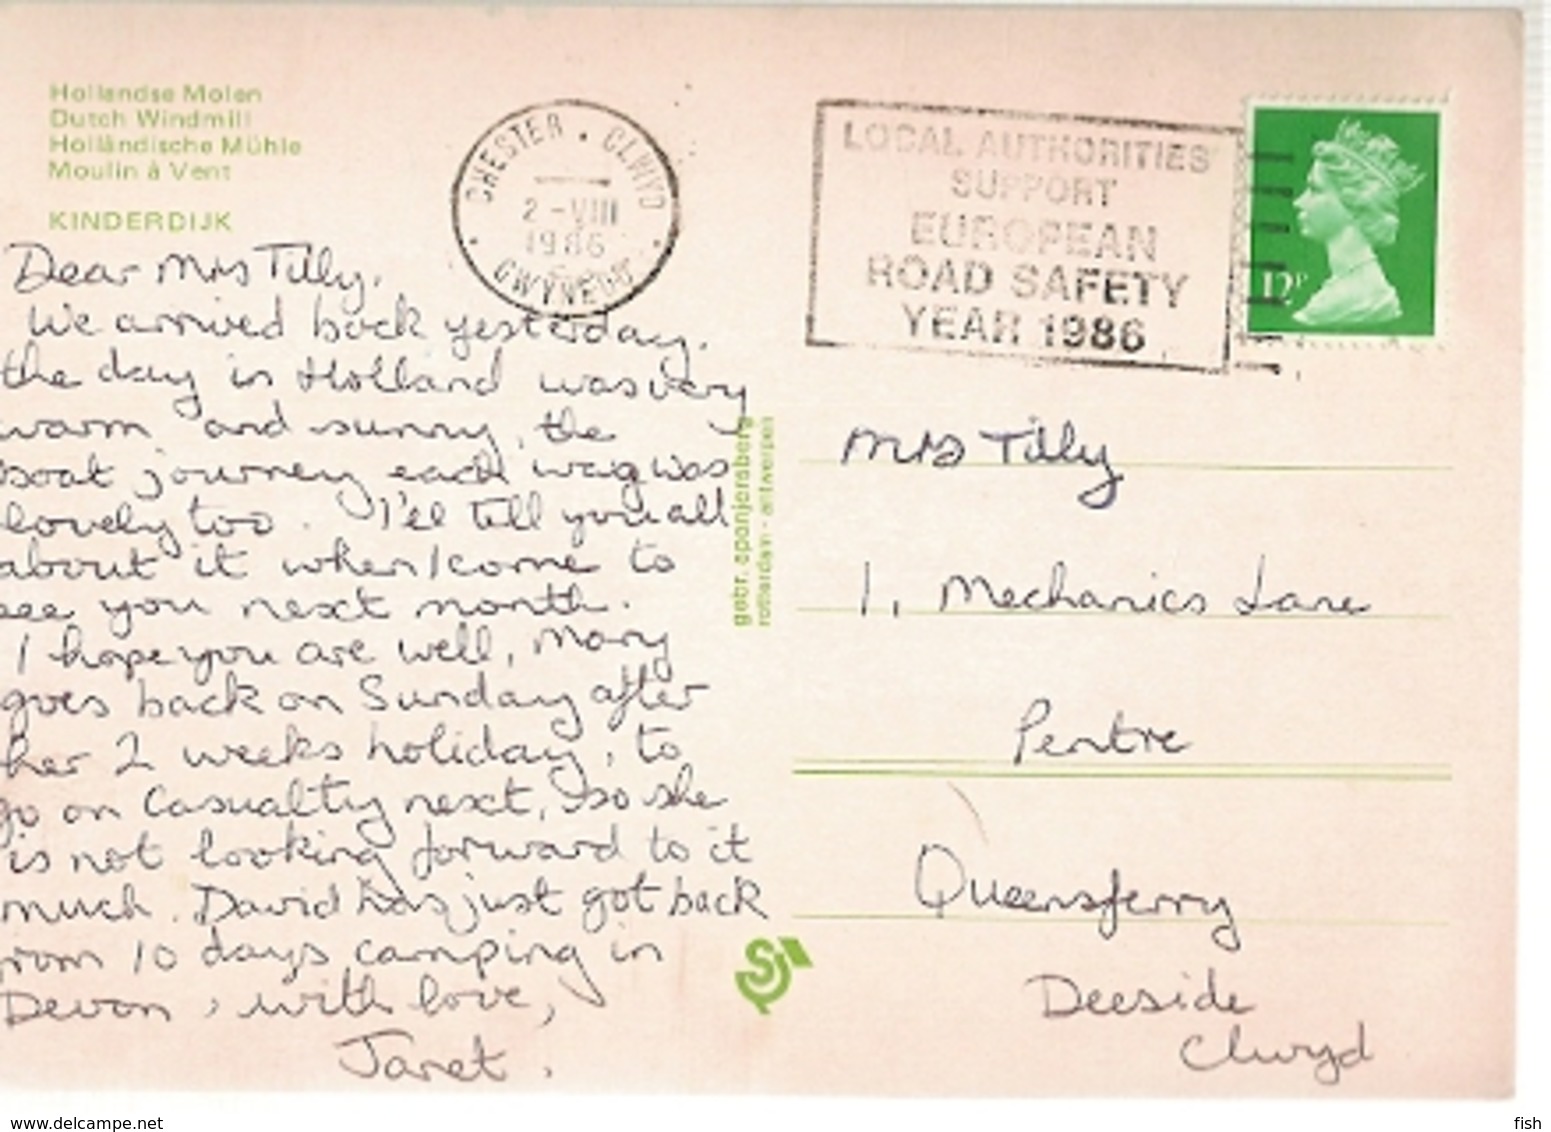 Hollandse Molen
Dutch Windmill
Holländische Mühle
Moulin à Vent
KINDERDIJK
Dear Mrs Tilly,
We arrived back yesterday.
the day in Holland was very
warm and sunny, the
boat journey each way was
lovely too. I'll tell you all
about it when I come to
see you next month.
I hope you are well, Mary
goes back on Sunday after
her 2 weeks holiday, to
go on Casualty next, so she
is not looking forward to it
much. David has just got back
from 10 days camping in
Devon, with love,
Janet.
CHESTER . CLWYD
2-VIII
1986
GWYNEDD
LOCAL AUTHORITIES
SUPPORT
EUROPEAN
ROAD SAFETY
YEAR 1986
12P
gebr. spanjersberg
rotterdam - antwerpen
Mrs Tilly
1, Mechanics Lane
Pentre
Queensferry
Deeside
Clwyd
SJ
www.delcampe.net
fish